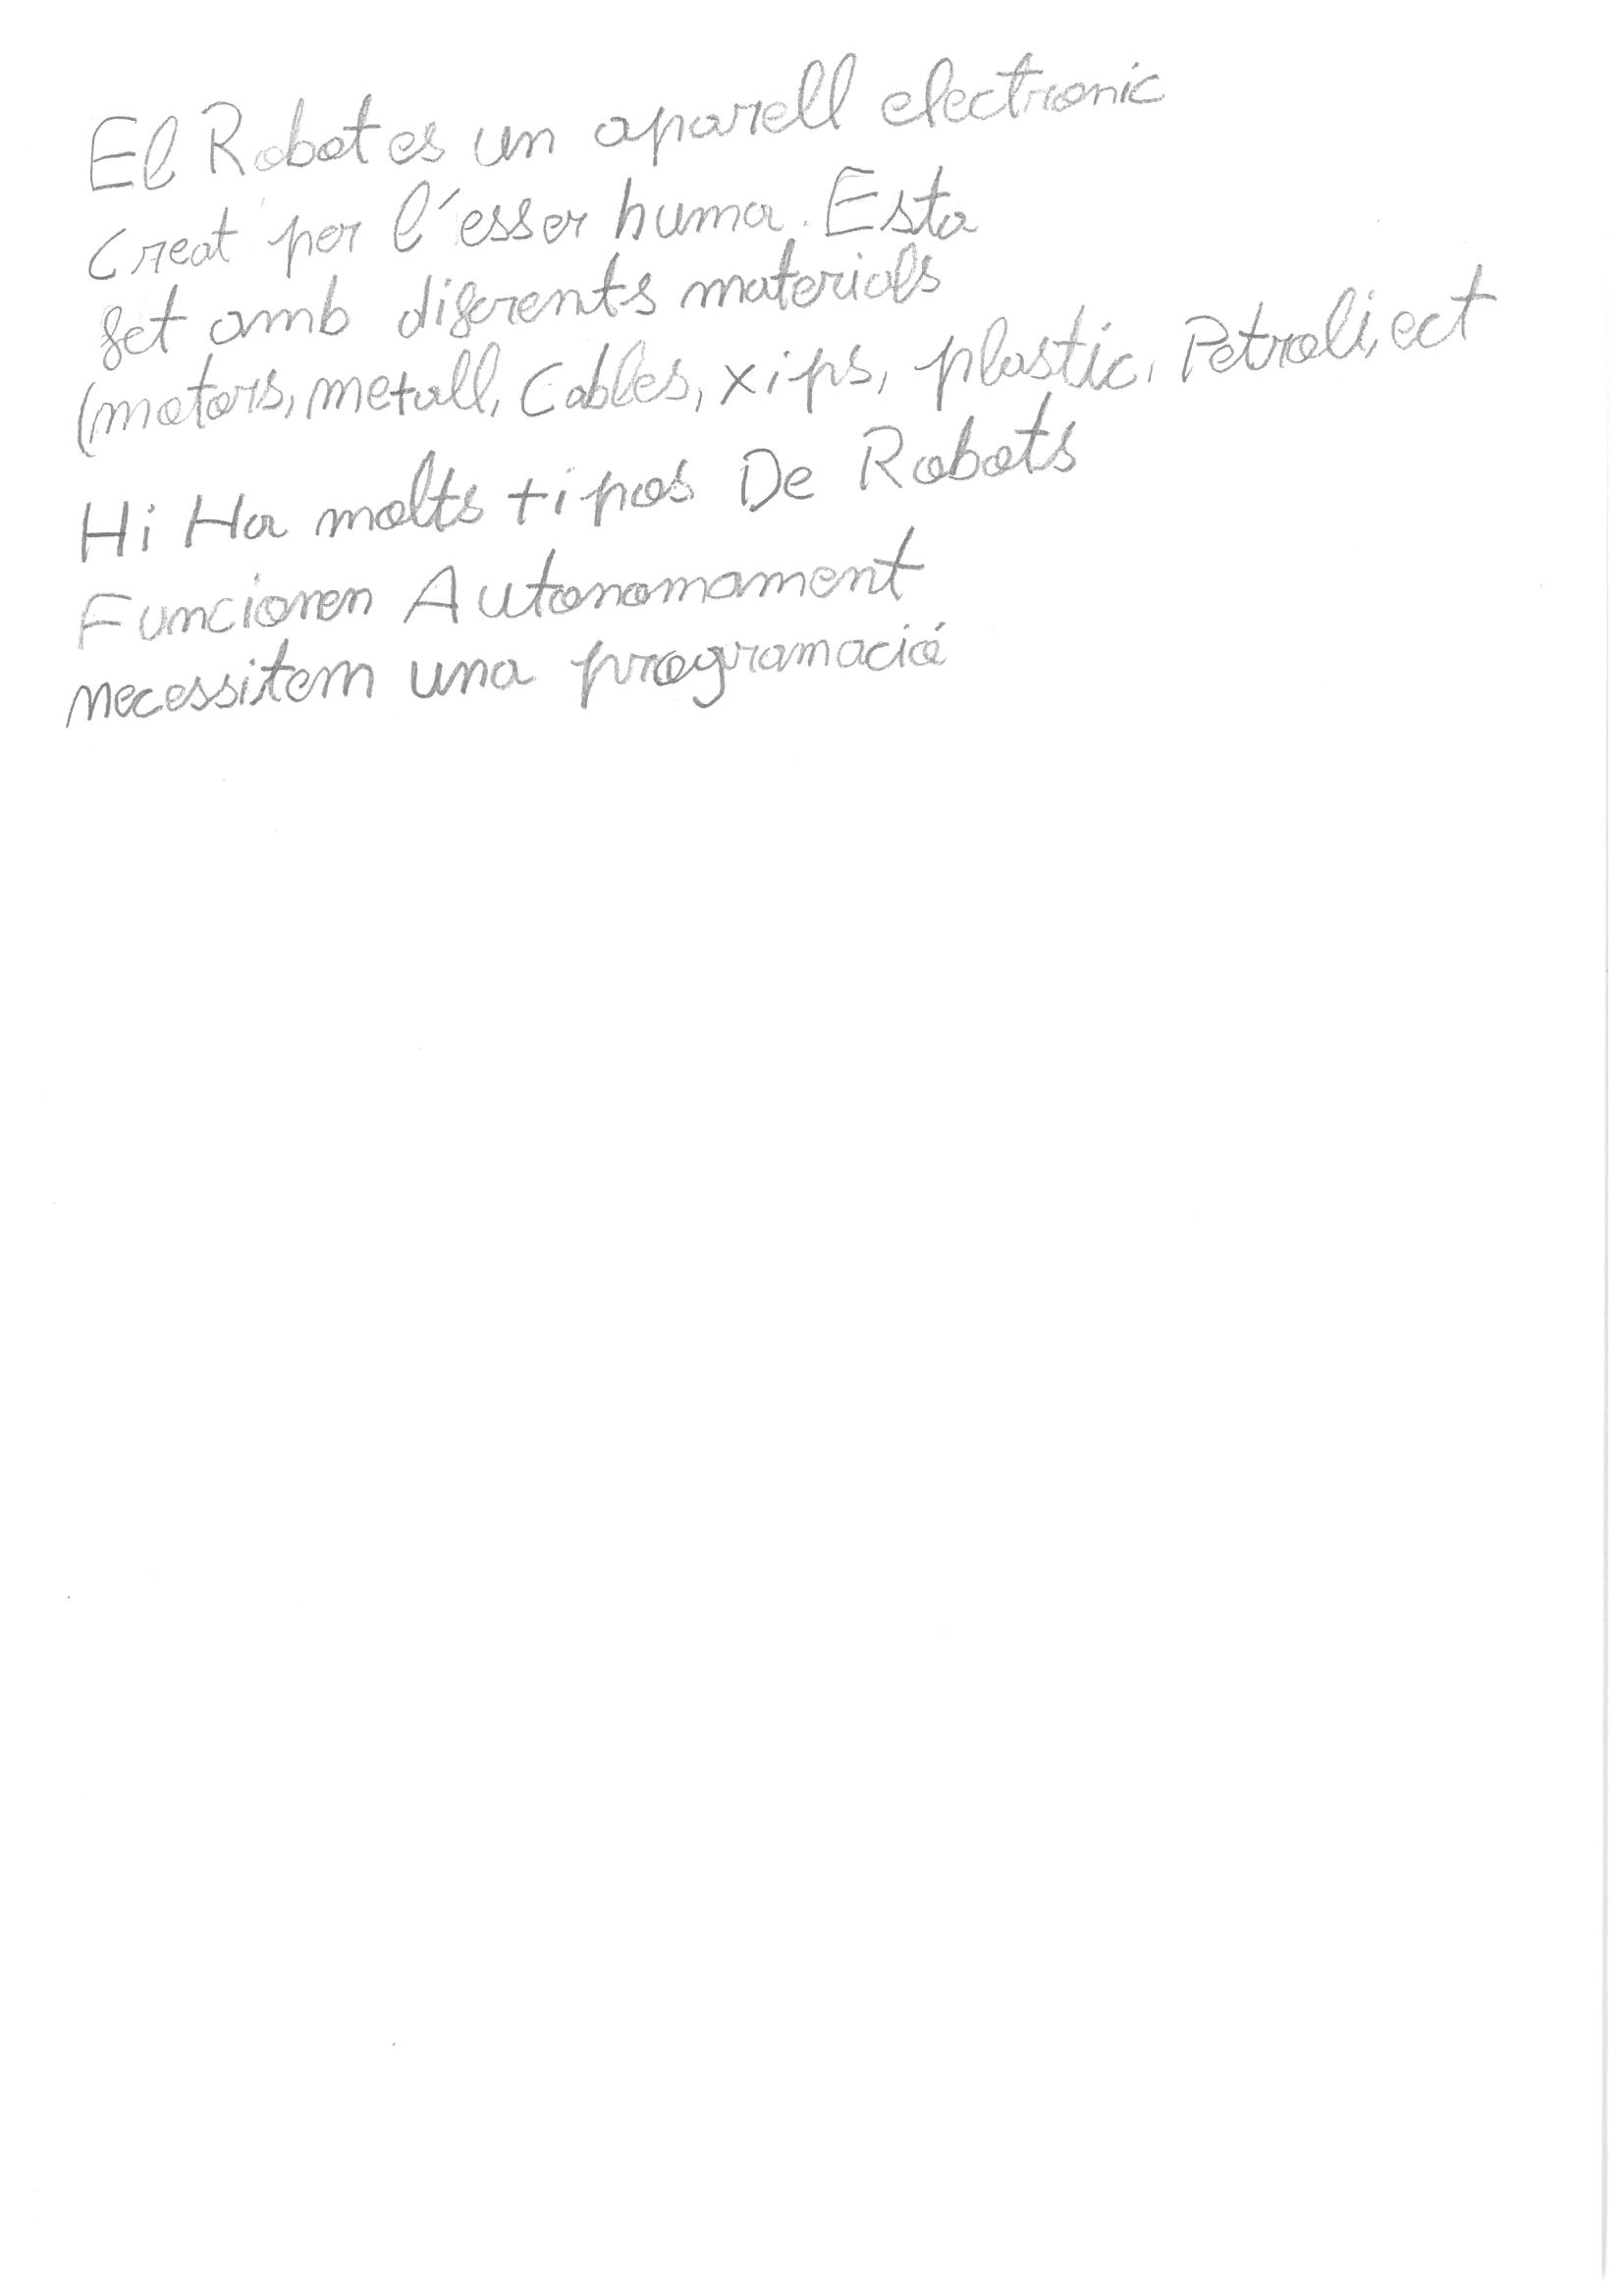 El Robot es un aparell electronic
creat per l'esser huma. Esta
fet amb diferents materials
(motors, metall, Cables, xips, plastic, Petroli, ect
Hi Ha molts tipos De Robots
Funcionen Autonomament
necessitem una programació